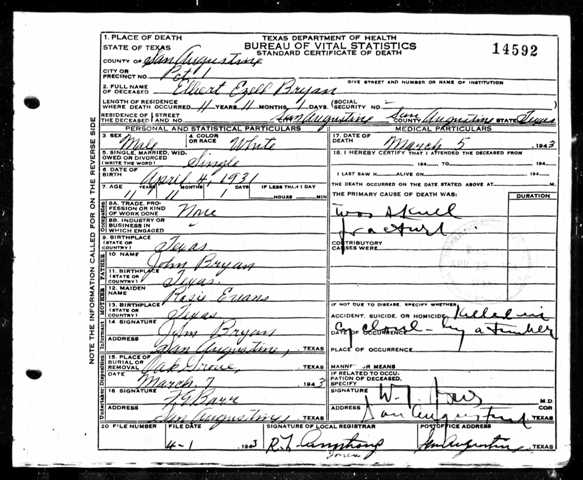 TEXAS DEPARTMENT OF HEALTH
BUREAU OF VITAL STATISTICS
STANDARD CERTIFICATE OF DEATH
14592
1. PLACE OF DEATH
STATE OF TEXAS
COUNTY OF San Augustine
CITY OR
PRECINCT NO. Pct 1
GIVE STREET AND NUMBER OR NAME OF INSTITUTION
2. FULL NAME
OF DECEASED Elbert Ezell Bryan
LENGTH OF RESIDENCE
WHERE DEATH OCCURRED 11 YEARS 11 MONTHS 1 DAYS (SOCIAL SECURITY NO. -
RESIDENCE OF THE DECEASED STREET AND NO. San Augustine COUNTY San Augustine STATE Texas
PERSONAL AND STATISTICAL PARTICULARS
3. SEX Male 4. COLOR OR RACE White
5. SINGLE, MARRIED, WIDOWED OR DIVORCED (WRITE THE WORD) Single
6. DATE OF BIRTH April 4, 1931
7. AGE YEARS 11 MONTHS 11 DAYS 1 IF LESS THAN 1 DAY
HOURS MIN
8A. TRADE, PROFESSION OR KIND OF WORK DONE None
8B. INDUSTRY OR BUSINESS IN WHICH ENGAGED -
9. BIRTHPLACE (STATE OR COUNTRY) Texas
10 NAME John Bryan
11. BIRTHPLACE (STATE OR COUNTRY) Texas
12. MAIDEN NAME Rosie Evans
13. BIRTHPLACE (STATE OR COUNTRY) Texas
14 SIGNATURE John Bryan
ADDRESS San Augustine, TEXAS
15. PLACE OF BURIAL OR REMOVAL Oak Grove, TEXAS
DATE March 7 1943
16 SIGNATURE
ADDRESS San Augustine TEXAS
MEDICAL PARTICULARS
17. DATE OF DEATH March 5, 1943
18. I HEREBY CERTIFY THAT I ATTENDED THE DECEASED FROM
194 TO 194
I LAST SAW H ALIVE ON 194
THE DEATH OCCURRED ON THE DATE STATED ABOVE AT M
THE PRIMARY CAUSE OF DEATH WAS: DURATION
was skull
fracture
CONTRIBUTORY CAUSES WERE:
IF NOT DUE TO DISEASE, SPECIFY WHETHER:
ACCIDENT, SUICIDE, OR HOMICIDE Killed in
Cyclone - by a timber
DATE OF OCCURRENCE
PLACE OF OCCURRENCE
MANNER OR MEANS
IF RELATED TO OCCUPATION OF DECEASED, SPECIFY
SIGNATURE M.D.
ADDRESS San Augustine COR
TEXAS
20 FILE NUMBER
FILE DATE 4-1 1943
SIGNATURE OF LOCAL REGISTRAR R.L. Armstrong
POSTOFFICE ADDRESS San Augustine TEXAS
NOTE THE INFORMATION CALLED FOR ON THE REVERSE SIDE
Occupation
FATHER
MOTHER
Informant